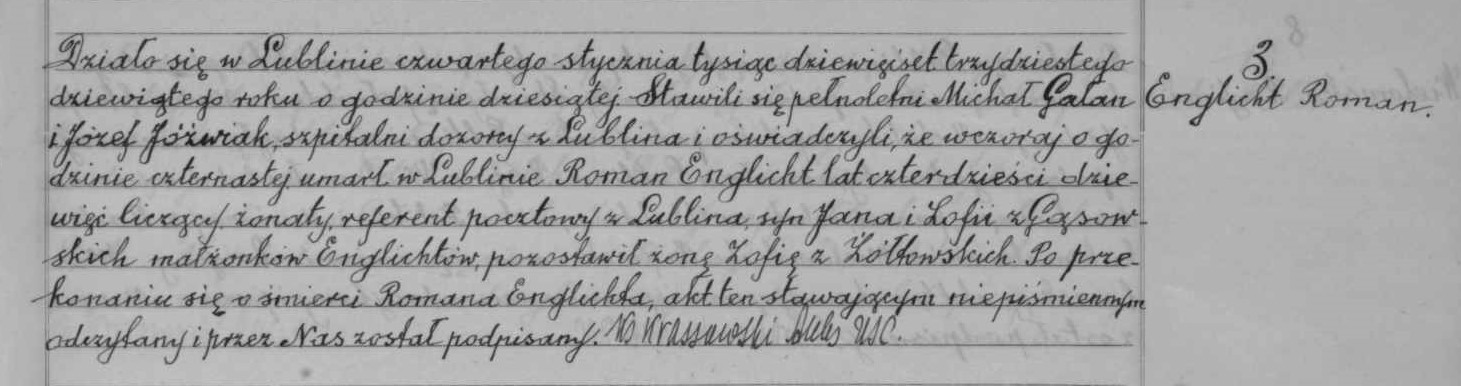 Działo się w Lublinie czwartego stycznia tysiąc dziewięćset trzydziestego
dziewiątego roku o godzinie dziesiątej Stawili się pełnoletni Michał Gałan
i Józef Jóźwiak, szpitalni dozorcy z Lublina i oświadczyli, że wczoraj o go-
dzinie czternastej umarł w Lublinie Roman Englicht lat czterdzieści dzie-
więć liczący żonaty, referent pocztowy z Lublina, syn Jana i Zofii z Gąsow-
skich małżonków Englichtów, pozostawił żonę Zofię z Żółtowskich. Po prze-
konaniu się o śmierci Romana Englichta, akt ten stawającym niepiśmiennym
odczytany i przez Nas został podpisany. Krassowski USC.
3
Englicht Roman.